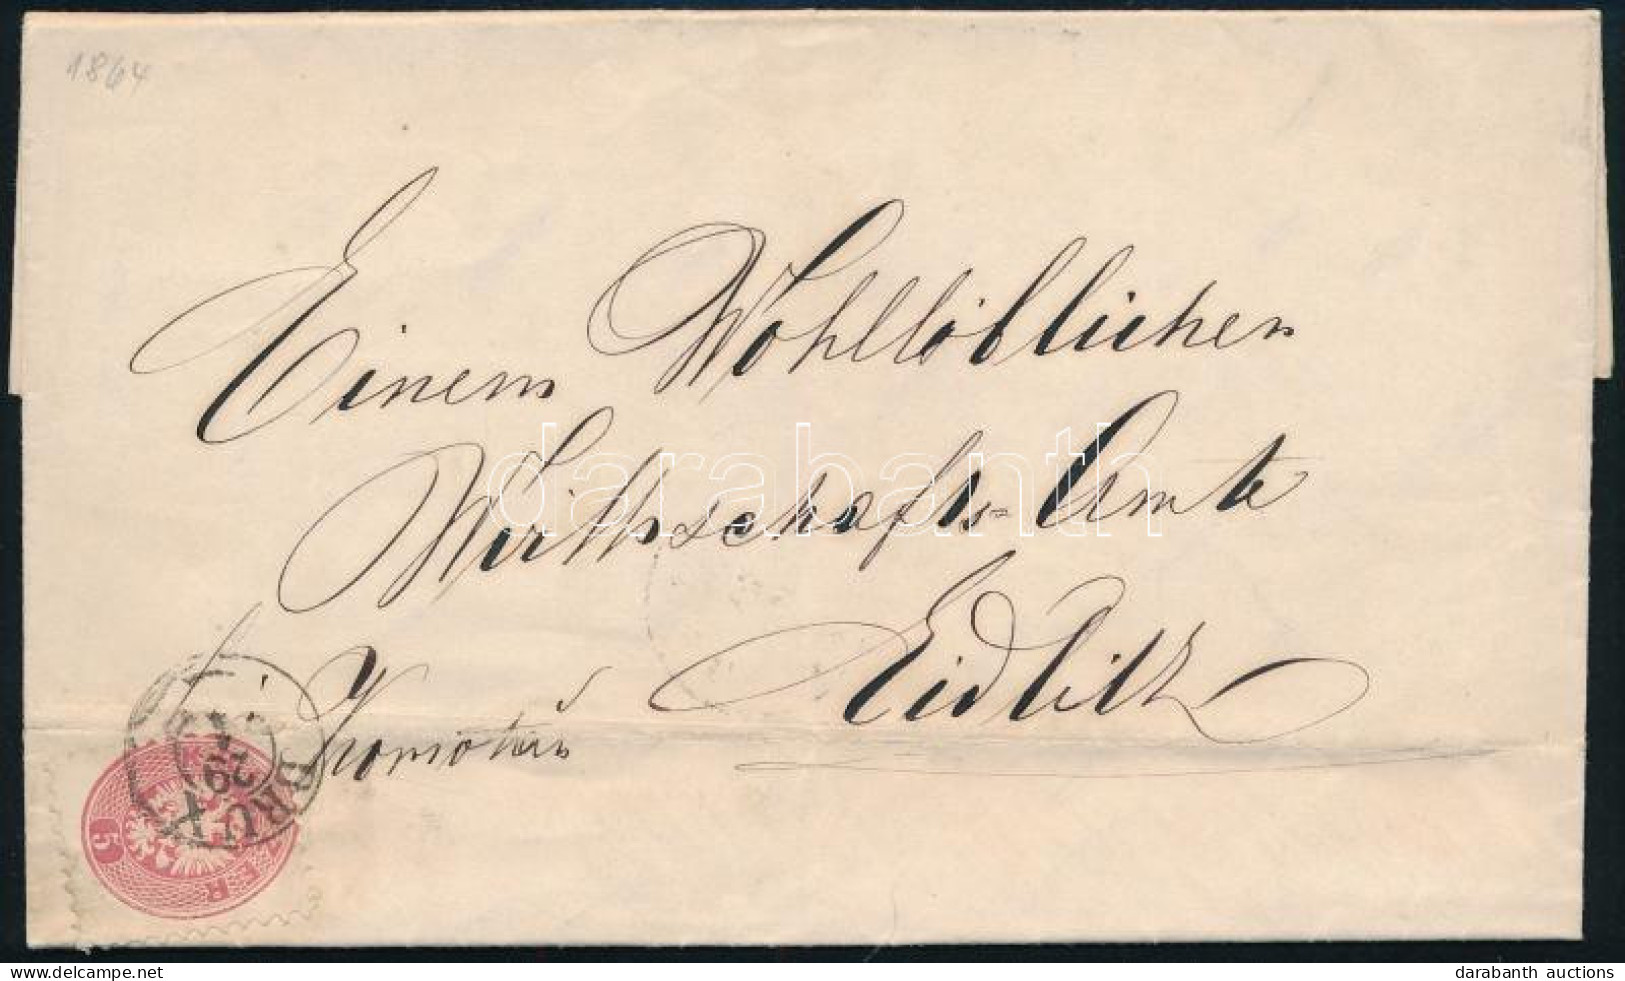 1864
Einem Wohllöblichen
Wirthschafts=Amte
Eidlitz
Komotau
BRUX
29
5
KR ER
darabanth
www.delcampe.net
darabanth auctions